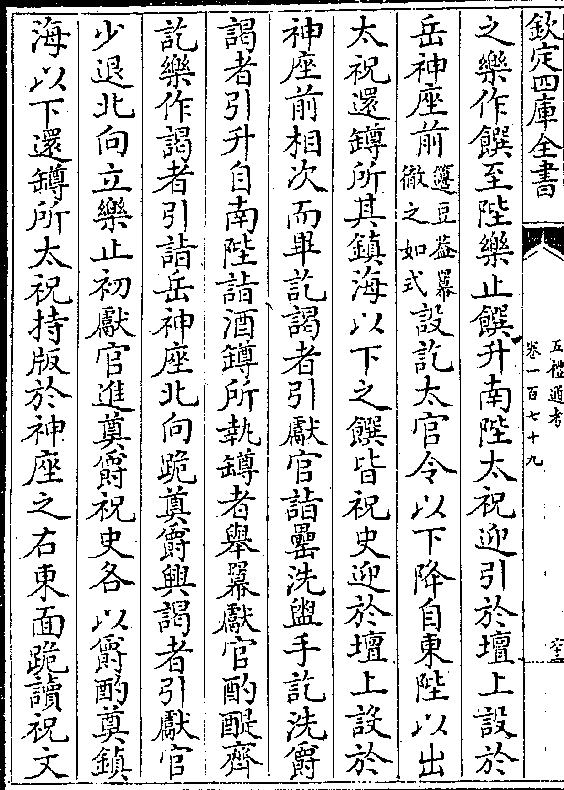 欽定四庫全書
五禮通考
卷一百七十九
之樂作饌至陛樂止饌升南陛太祝迎引於壇上設於
岳神座前籩豆葢羃徹之如式設訖太官令以下降自東陛以出
太祝還罇所其鎮海以下之饌皆祝史迎於壇上設於
神座前相次而畢訖謁者引獻官詣罍洗盥手訖洗爵
謁者引升自南陛詣酒罇所執罇者舉羃獻官酌醍齊
訖樂作謁者引詣岳神座北向跪奠爵興謁者引獻官
少退北向立樂止初獻官進奠爵祝史各以爵酌奠鎮
海以下還罇所太祝持版於神座之右東面跪讀祝文